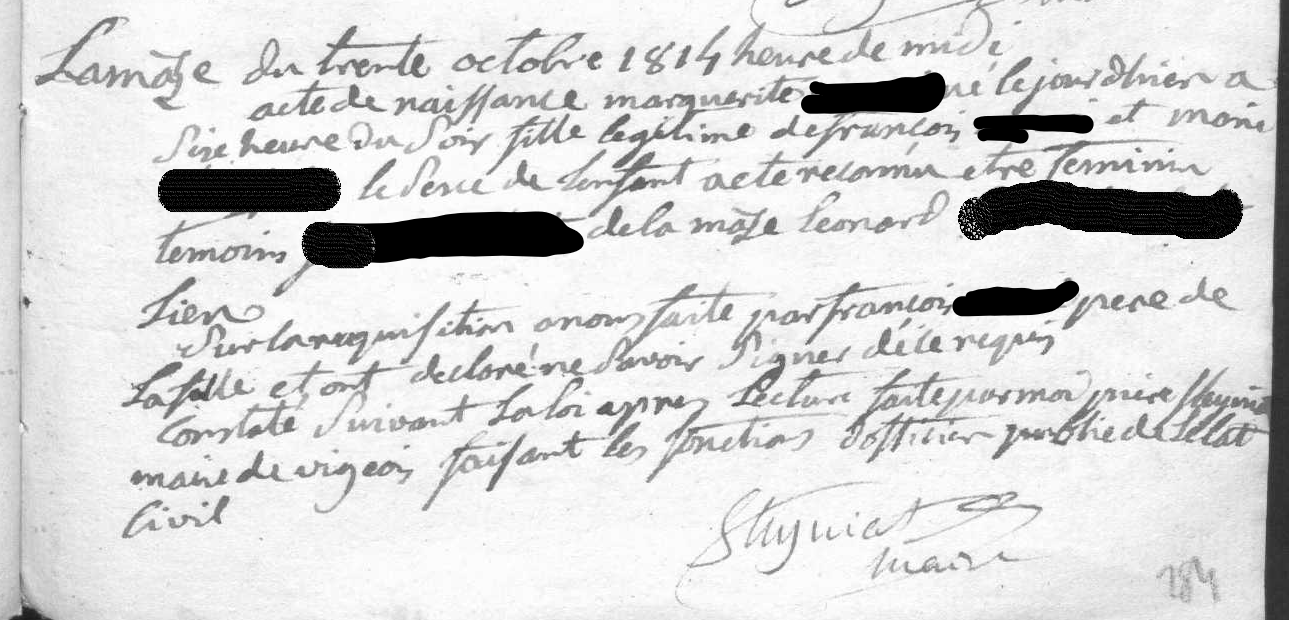 Lamaze du trente octobre 1814 heure de midi
acte de naissance marguerite né le jour dhier a
Sixe heure du Soir fille legitime de francois et marie
le Sexe de Lenfant acte reconnu etre feminin
temoins de la maze leonard
Lien
Sur la requisition a nous faite par francois pere de
La fille et ont declaré ne Savoir Signer de ce requis
Constaté Suivant La loi apres Lecture faite par moi
maire de vigeois faisant les fonctions dofficier publie de Lelat
Civil
maire
284